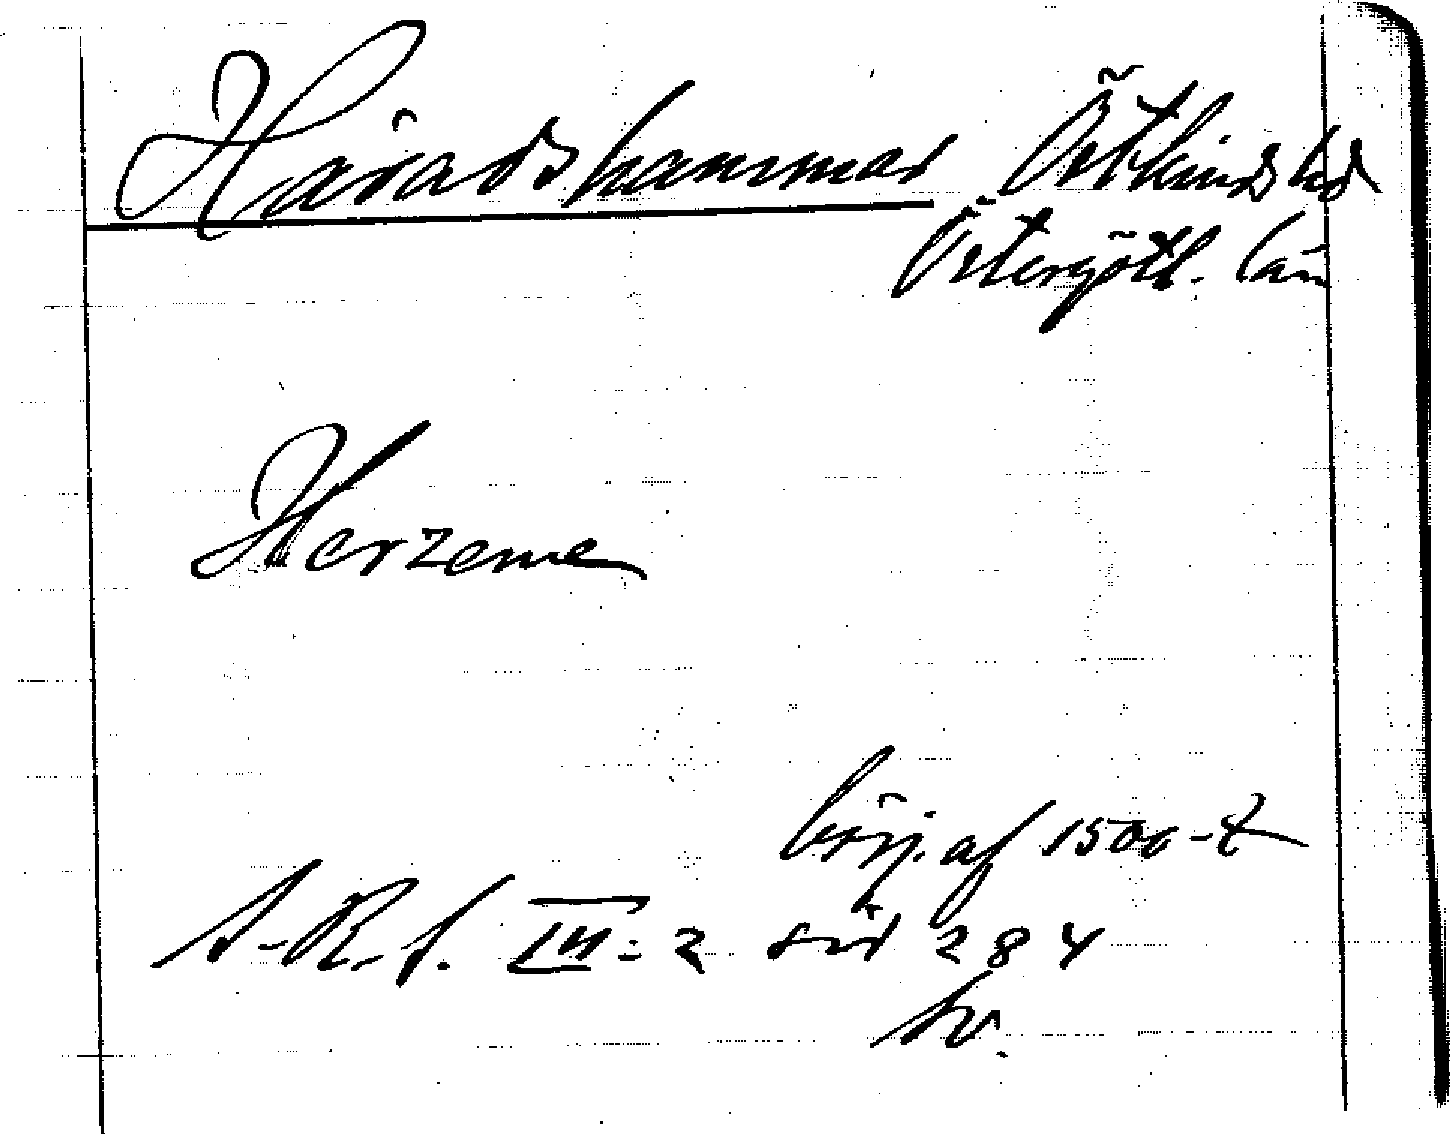 Häradshammar Östkinds hd
Östergötl. län
Herzeme
börj. af 1500-t
S.R.f. III:2 sid 284
sv.